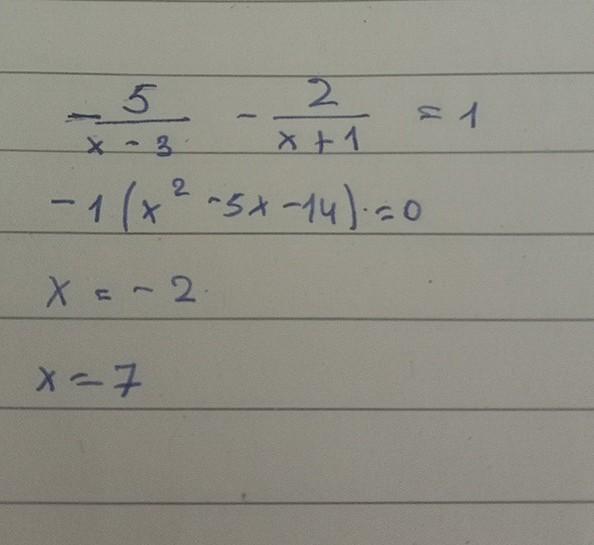 - 5/(x - 3) - 2/(x + 1) = 1
-1(x² -5x -14) = 0
x = -2
x = 7